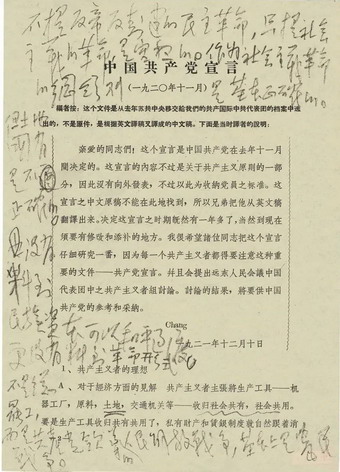 不提反帝反封建的民主革命，只提社会
主义的革命，是空想的。作为社会主义革命
的纲领则是基本正确的。
中国共产党宣言
（一九二〇年十一月）
編者按：这个文件是从去年苏共中央移交給我們的共产国际中共代表团的档案中选
出的，不是原件，是根据英文譯稿又譯成的中文稿。下面是当时譯者的說明：
亲爱的同志們！这个宣言是中国共产党在去年十一月
間决定的。这宣言的内容不过是关于共产主义原則的一部
分，因此沒有向外发表，不过以此为收納党員之标准。这
宣言之中文原稿不能在此地找到，所以兄弟把他从英文稿
翻譯出来。决定这宣言之时期既然有一年多了，当然到現在
須要有修改和添补的地方。我很希望諸位同志把这个宣言
仔細研究一番，因为每一个共产主义者都得要注意这种重
要的文件——共产党宣言。并且会提出远东人民会議中国
代表团中之共产主义者組討論。討論的結果，将要供中国
共产党的参考和采納。
Chang
一九二一年十二月十日
1、共产主义者的理想
A、对于經济方面的見解　共产主义者主張将生产工具——机
器工厂，原料，土地，交通机关等——收归社会共有，社会共用。
要是生产工具收归共有共用了，私有財产和賃銀制度就自然跟着消
土地
国有
是不
正确的。
没有
料到
民族资本可以和平过渡。
更没有料到革命形式，
不是总
罢工，
而是
共产党领导的人民解放战争，基本上是农民
战争。